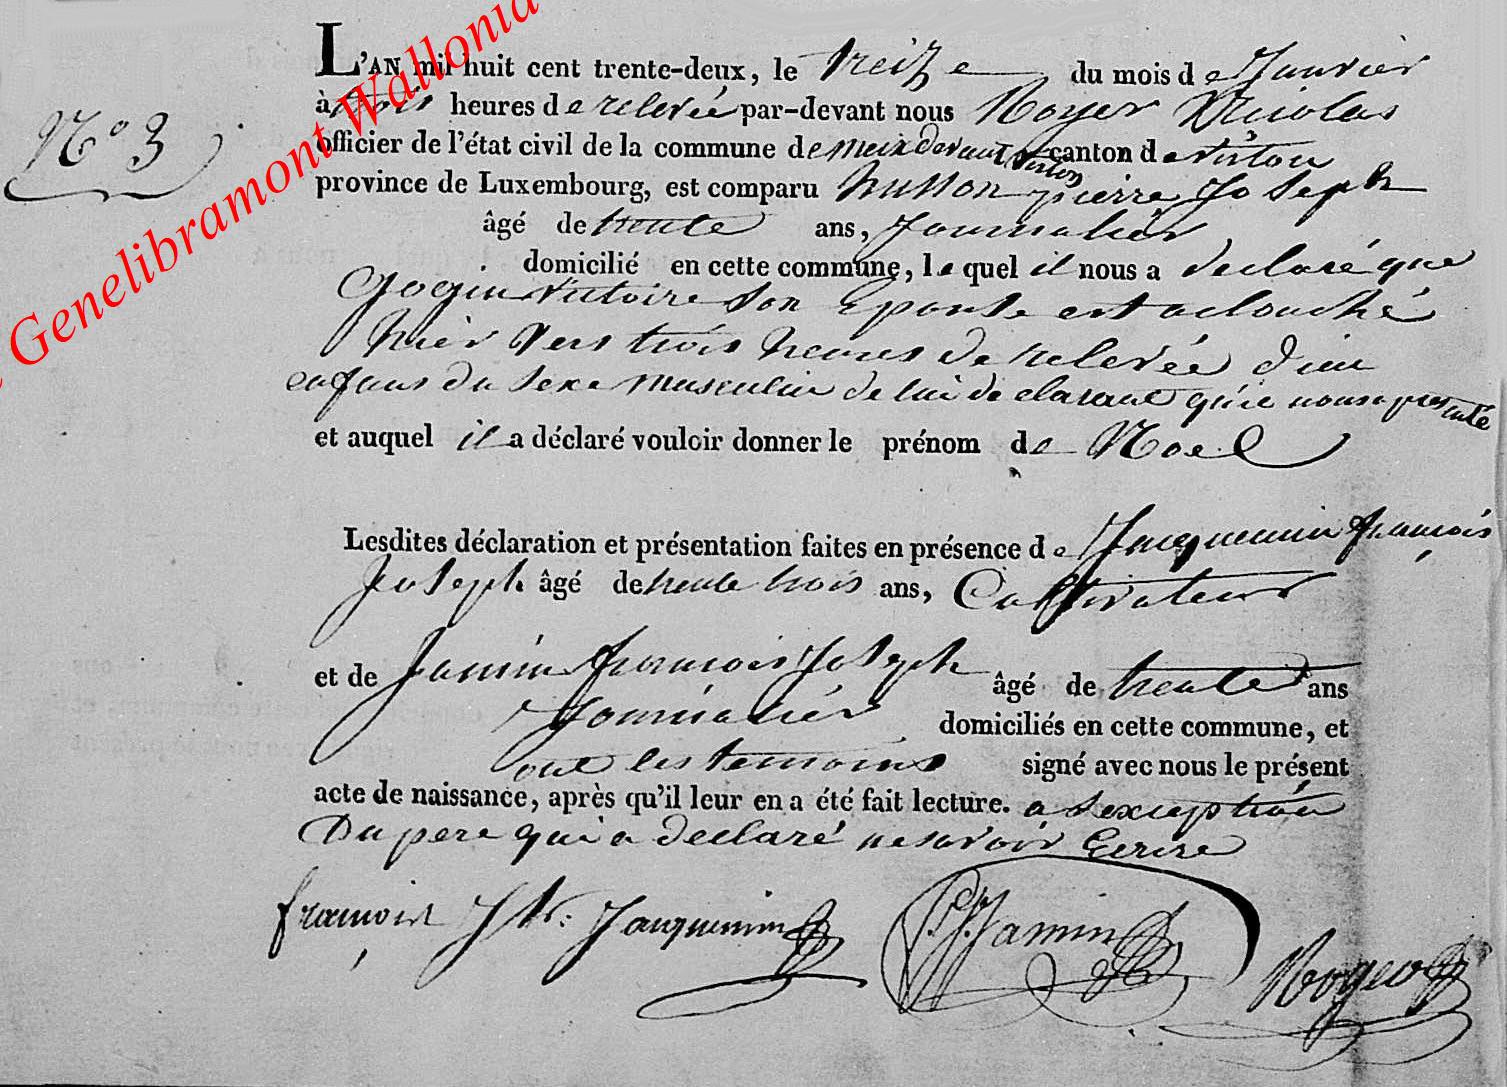 Genelibramont Wallonia
L'AN mil huit cent trente-deux, le treize du mois de Janvier
N° 3
à trois heures de relevée par-devant nous Royer Nicolas
officier de l'état civil de la commune de meix devant virton canton de virton
province de Luxembourg, est comparu husson pierre Joseph
âgé de trente ans, Journalier
domicilié en cette commune, lequel il nous a declaré que
Gogin Victoire son Epouse est acouché
hier vers trois heures de relevée d'un
enfans du sexe masculin de lui declarant qu'il nous a presenté
et auquel il a déclaré vouloir donner le prénom de Noel
Lesdites déclaration et présentation faites en présence de Jacquemin françois
Joseph âgé de trente trois ans, Cultivateur
et de Jamin françois Joseph âgé de trente ans
Journalier domiciliés en cette commune, et
ont les temoins signé avec nous le présent
acte de naissance, après qu'il leur en a été fait lecture. a l'exception
Du pere qui a declaré ne savoir Ecrire
françois Jh: Jacquemin F. J. Jamin Royer